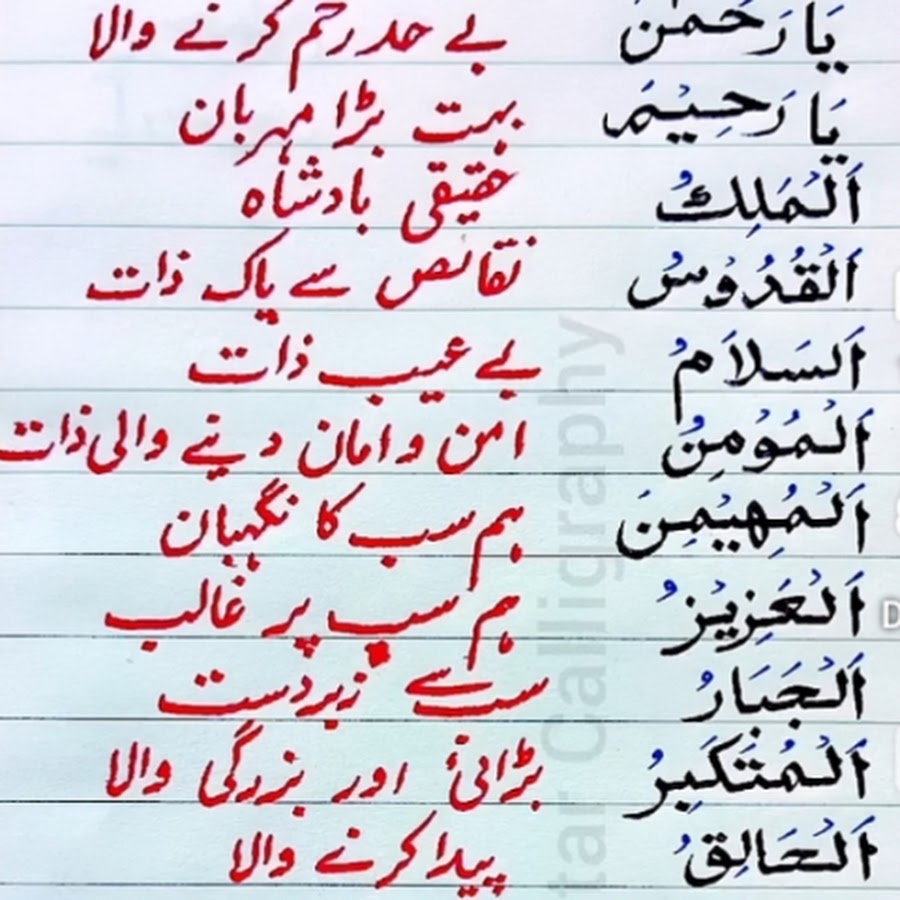 یَا رَحْمٰنُ بے حد رحم کرنے والا
یَا رَحِیْمُ بہت بڑا مہربان
اَلْمَلِكُ حقیقی بادشاہ
اَلْقُدُّوْسُ نقائص سے پاک ذات
اَلسَلَامُ بے عیب ذات
اَلْمُؤْمِنُ امن و امان دینے والی ذات
اَلْمُهَیْمِنُ ہم سب کا نگہبان
اَلْعَزِیْزُ ہم سب پر غالب
اَلْجَبَارُ سب سے زبردست
اَلْمُتَكَبِرُ بڑائی اور بزرگی والا
اَلْخَالِقُ پیدا کرنے والا
tar Calligraphy